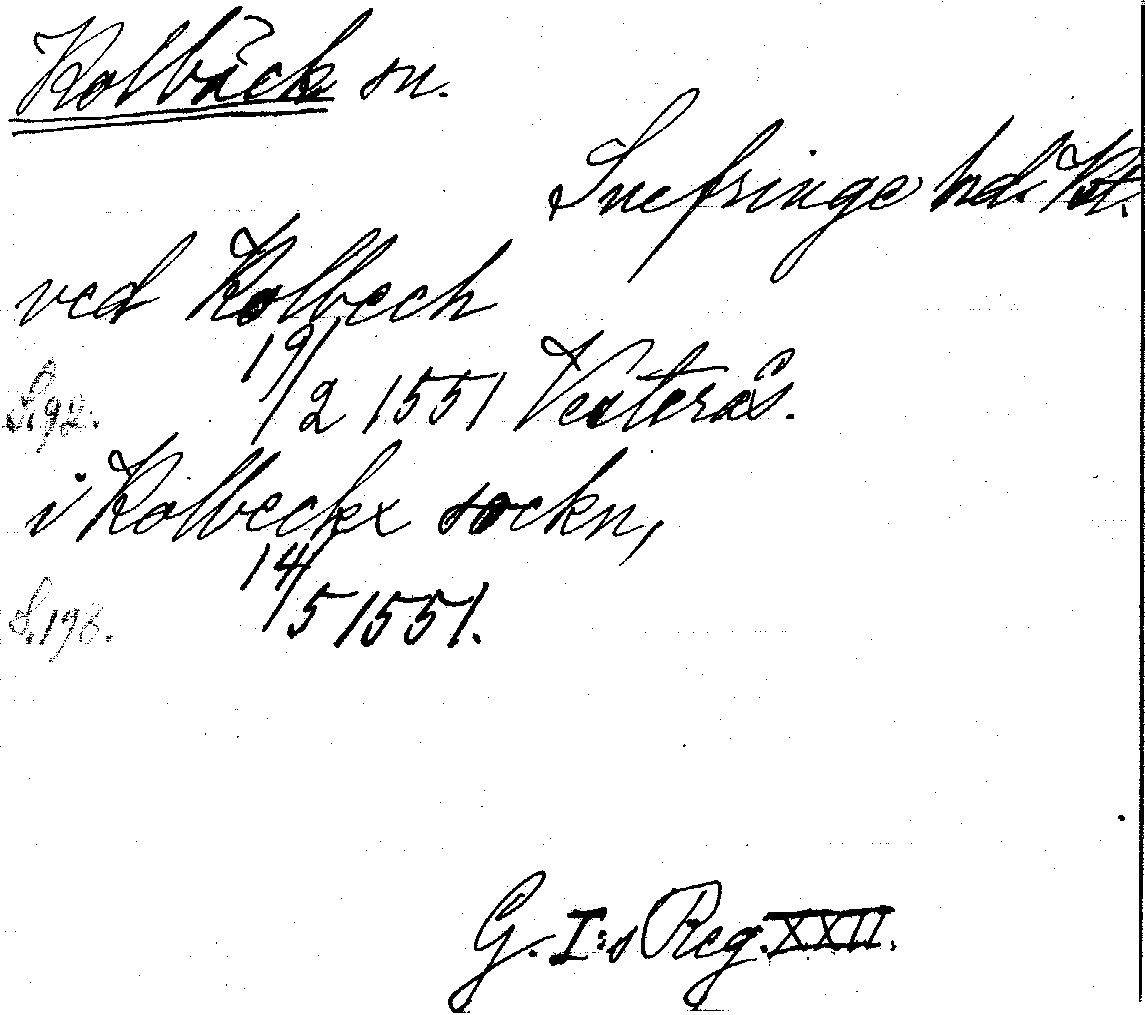 Kolbäck sn.
Snefringe hd. Vt.
ved Kolbech
19/2 1551 Vesterås.
S. 92.
i Kolbeckx sockn,
14/5 1551.
S. 198.
G. I:s Reg. XXII.